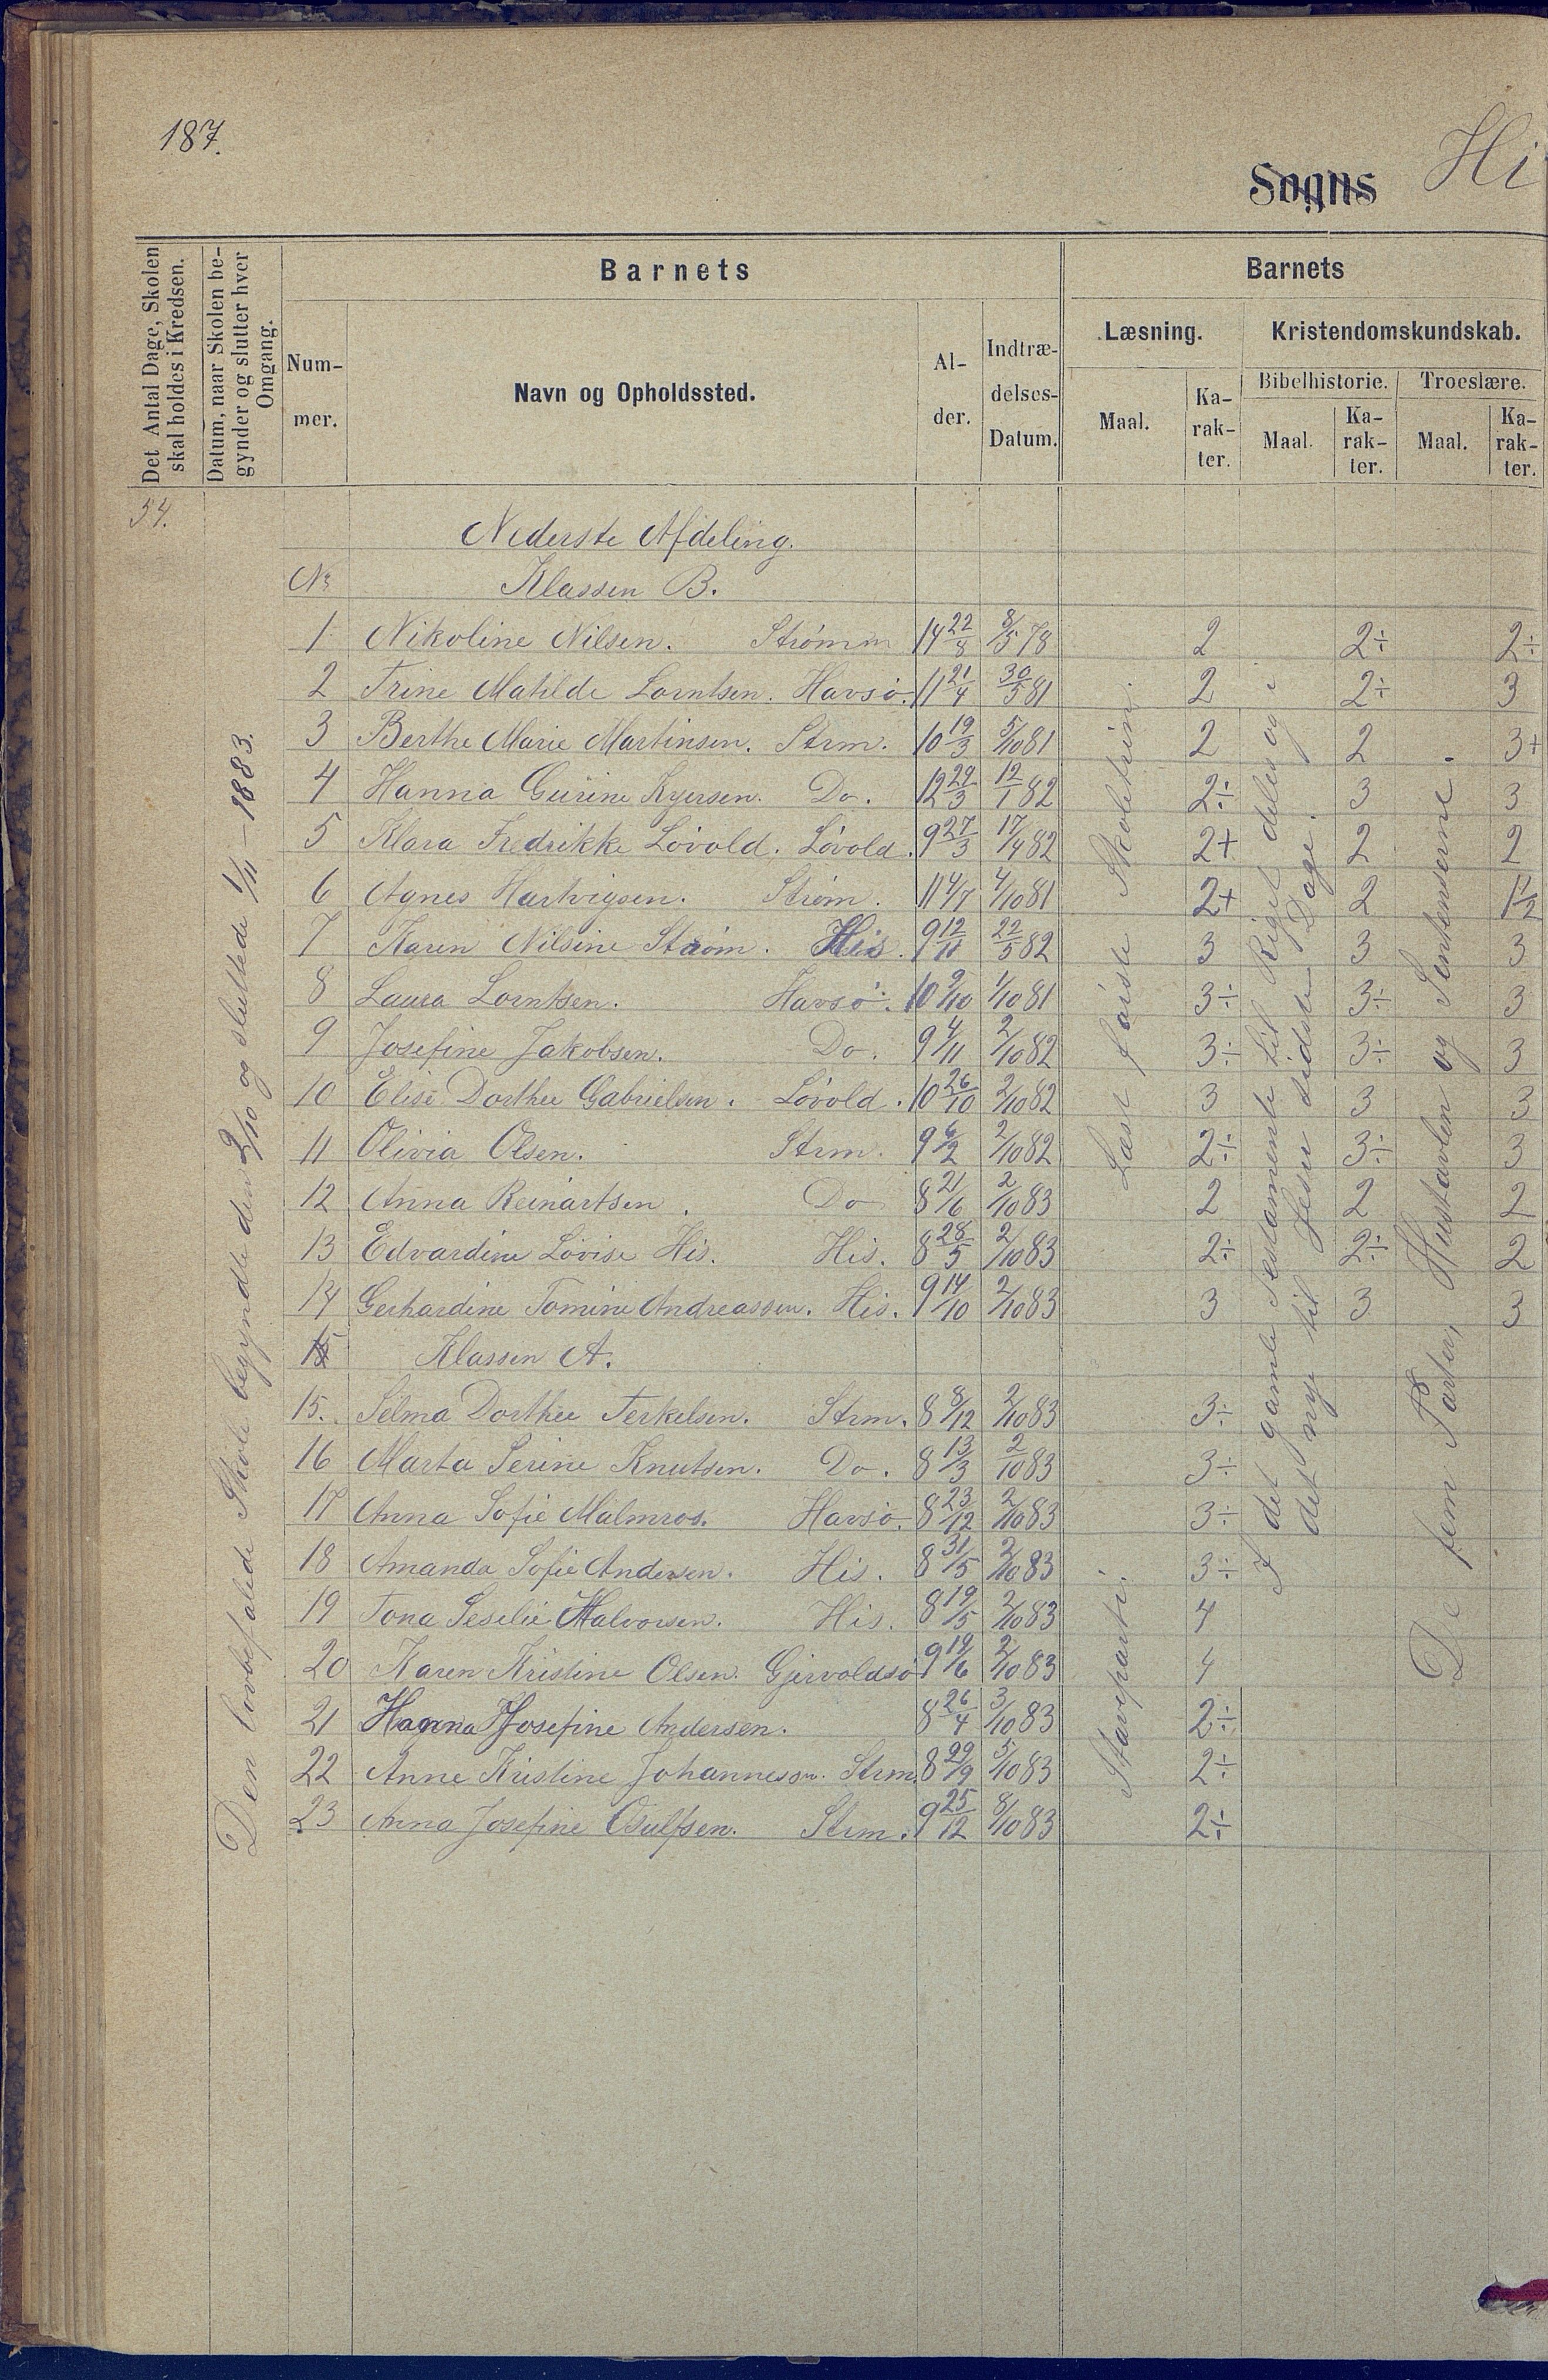 187.
Sogns Hi
Det Antal Dage, Skolen skal holdes i Kredsen.
Datum, naar Skolen begynder og slutter hver Omgang.
Barnets
Barnets
Num-mer.
Navn og Opholdssted.
Al-der.
Indtræ-delses-Datum.
Læsning.
Kristendomskundskab.
Bibelhistorie.
Troeslære.
Maal.
Ka-rak-ter.
Maal.
Ka-rak-ter.
Maal.
Ka-rak-ter.
54.
Den lovbefalede Skole begyndte den 2/10 og sluttede 1/11 – 1883.
Nederste Afdeling.
No Klassen B.
1 Nikoline Nilsen. Strømm 14 22/8 8/5 78 2 2÷ 2÷
2 Trine Matilde Lorntsen. Havsö. 11 21/4 30/5 81 2 2÷ 3
3 Berthe Marie Martinsen. Strm. 10 19/3 5/10 81 2 2 3+
4 Hanna Gurine Do. 12 29/3 12/1 82 2÷ 3 3
5 Klara Fredrikke Lövold. Lövold. 9 27/3 17/4 82 2+ 2 2
6 Agnes Hartvigsen. Strøm. 11 4/7 4/10 81 2+ 2 1½
7 Karen Nilsine Strøm. His. 9 12/11 22/5 82 3 3 3
8 Laura Lorntsen. Havsö. 10 9/10 1/10 81 3÷ 3÷ 3
9 Josefine Jakobsen. Do. 9 4/11 2/10 82 3÷ 3÷ 3
10 Elise Dorthee Gabrielsen. Lövold. 10 26/10 2/10 82 3 3 3
11 Olivia Olsen. Strm. 9 6/2 2/10 82 2÷ 3÷ 3
12 Anna Reinartsen. Do 8 21/6 2/10 83 2 2 2
13 Edvardine Lovise His. His. 8 28/5 2/10 83 2÷ 2÷ 2
14 Gerhardine Tomine Andreassen. His. 9 14/10 2/10 83 3 3 3
15 Klassen A.
15. Selma Dorthee Terkelsen. Strm. 8 8/12 2/10 83 3÷
16 Marta Serine Knutsen. Do. 8 13/3 2/10 83 3÷
17 Anna Sofie Malmros. Havsö. 8 23/12 2/10 83 3÷
18 Amanda Sofie Andersen. His. 8 31/5 2/10 83 3÷
19 Tona Seselie Halvorsen. His. 8 19/5 2/10 83 4
20 Karen Kristine Olsen. Gjervoldsö 9 19/6 2/10 83 4
21 Hanna Josefine Andersen. 8 26/4 3/10 83 2÷
22 Anne Kristine Johannessn. Strm. 8 29/9 5/10 83 2÷
23 Anna Josefine Osulfsen. Strm. 9 25/12 8/10 83 2÷
Læst første Skoletrin.
Stavepasti.
I det gamle Testamente til Riget deles og i
det nye til Jesu sidste Dage.
De fem Parter, Hustavlen og Sentenserne.